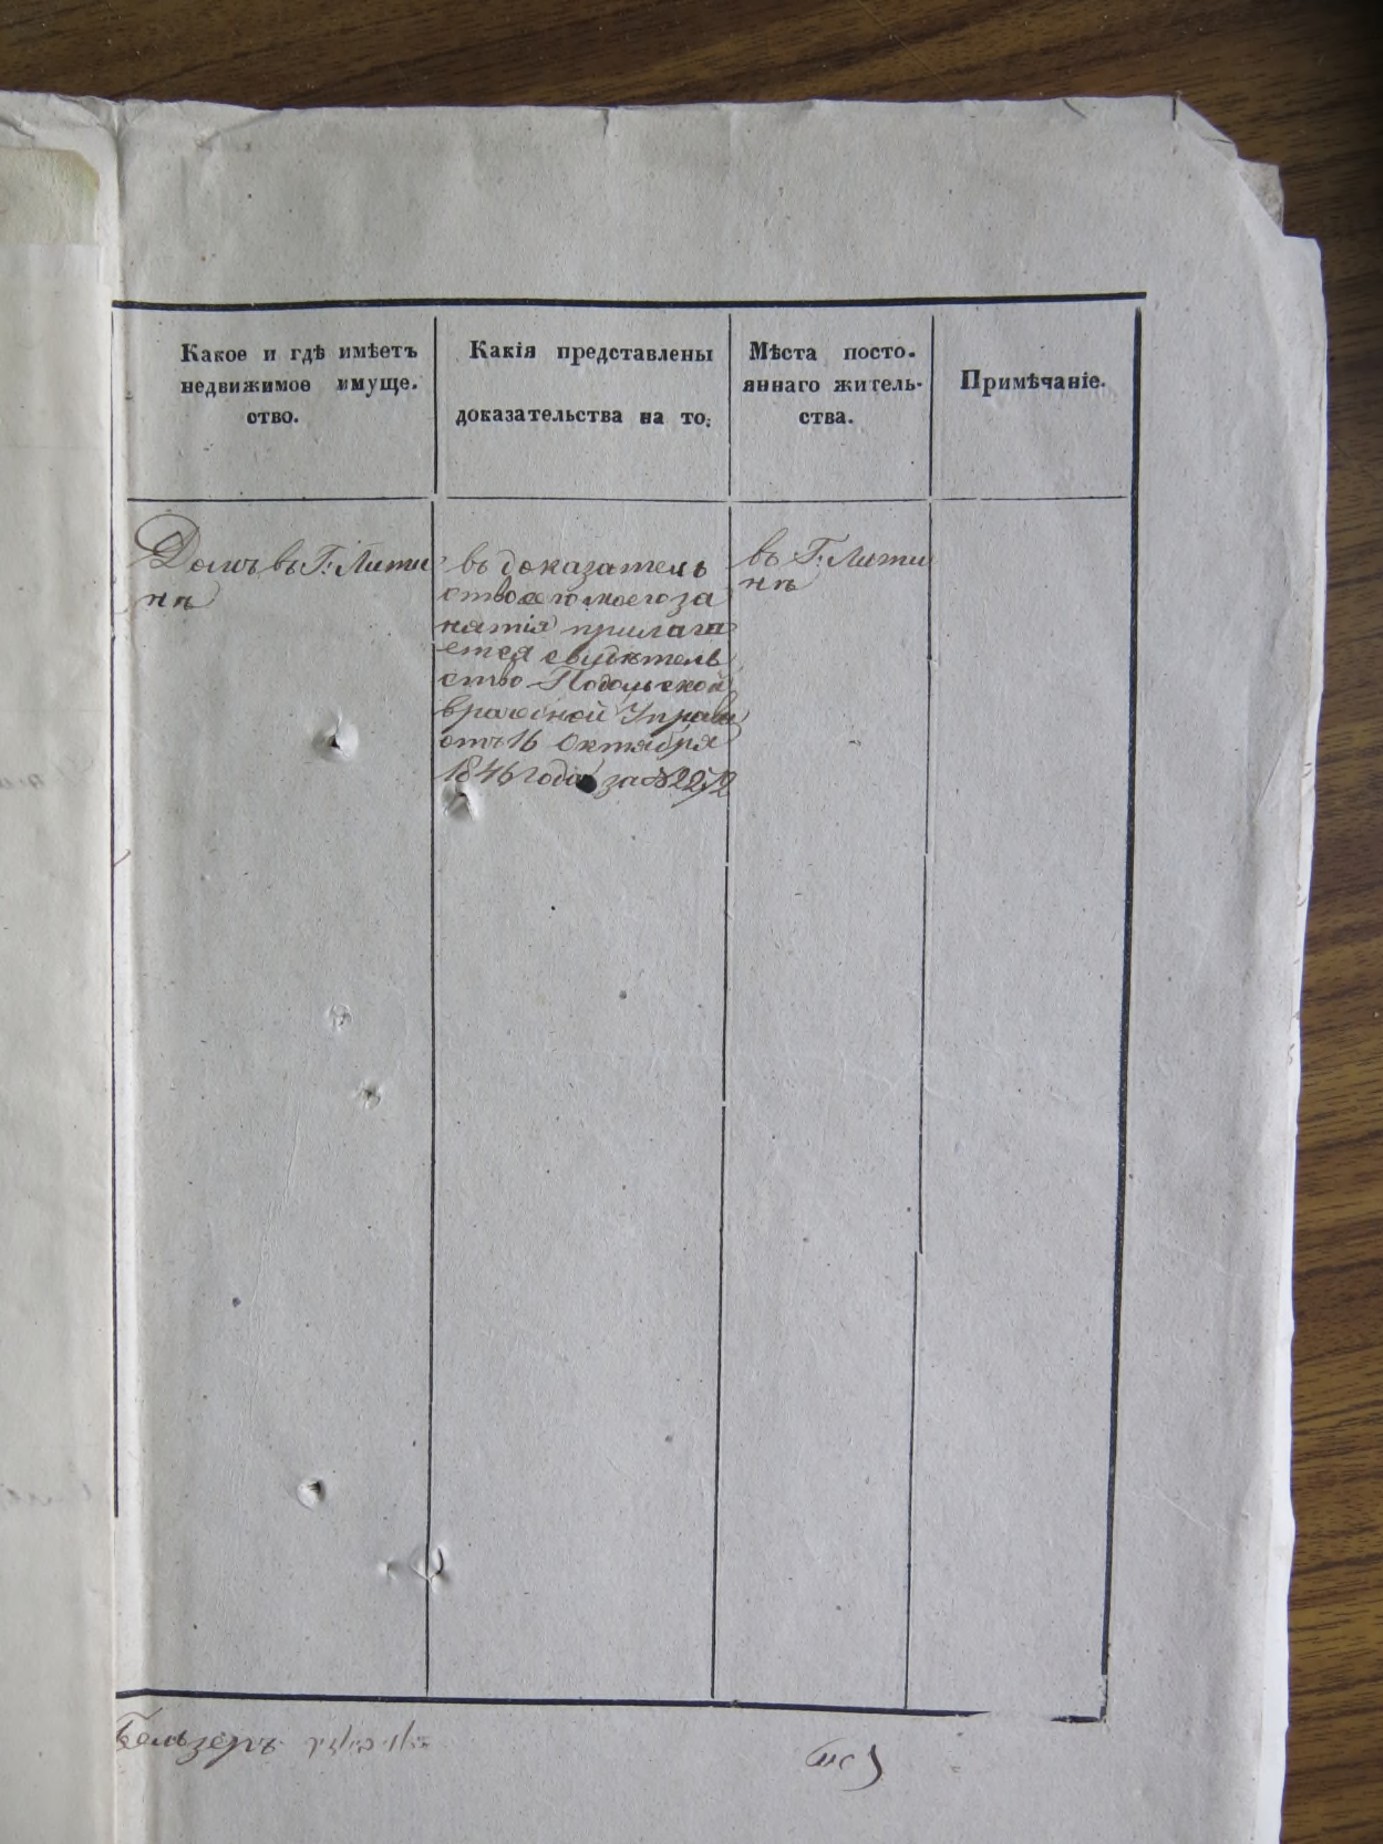 Какое и гдѣ имѣетъ
недвижимое имуще-
ство.
Какія представлены
доказательства на то.
Мѣста посто-
яннаго житель-
ства.
Примѣчаніе.
Домъ въ Г: Лити
нѣ
въ доказатель
ство сего моего за
нятія прилага
ется свидѣтель
ство Подольской
врачебной Управы
отъ 16 Октября
1846 года за №
въ Г: Лити
нѣ
Бельзеръ